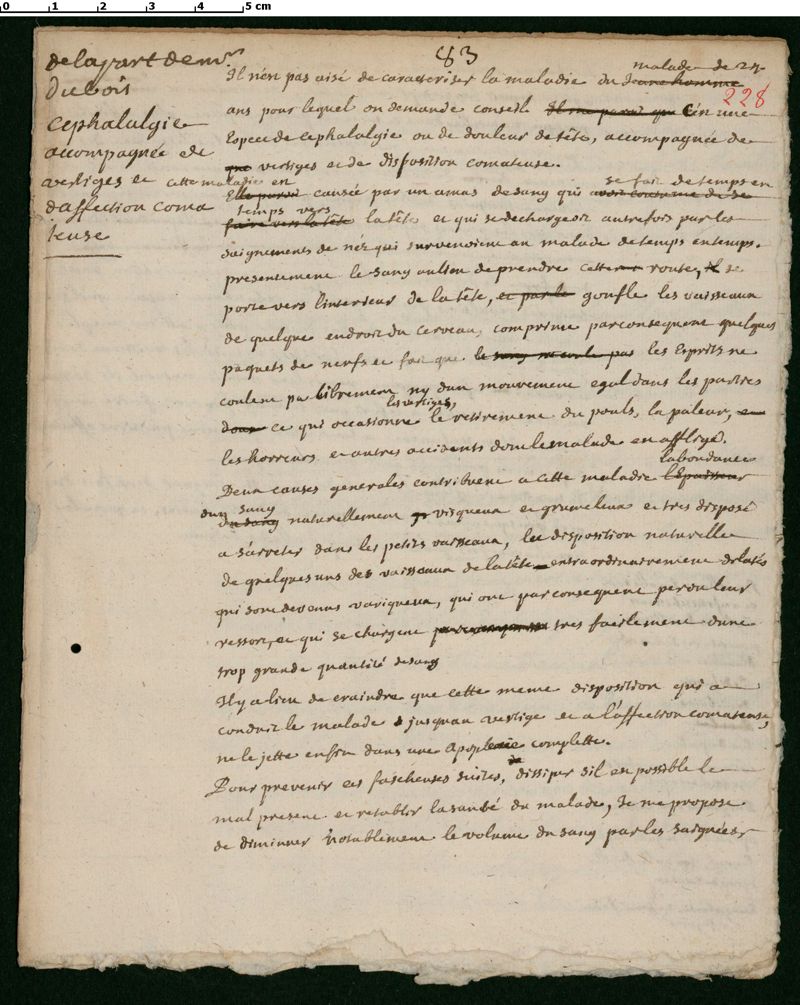 0 1 2 3 4 5 cm
83
228
de la part de mr
Dubois
Cephalalgie
accompagnée de
vertiges et
daffection coma
teuse
malade de 27.
Il n'est pas aisé de caracteriser la maladie du jeune homme
ans pour lequel on demande conseil Il me paroit que C'est une
Espece de cephalalgie ou de douleur de tête, accompagnée de
que vertiges et de disposition comateuse.
cette maladie est se fait de temps en
Elle paroit causée par un amas de sang qui avoit coutume de se
temps vers
faire vers la tête la tête et qui se dechargeoit autrefois par les
saignements de néz qui survenoient au malade de temps en temps.
presentement le sang au lieu de prendre cette route, il se
porte vers l'interieur de la tête, et par la gonfle les vaisseaux
de quelque endroit du cerveau, comprime par consequent quelques
paquets de nerfs et fait que le sang ne coule pas les Esprits ne
coulent pas librement ny dun mouvement egal dans les parties
les vertiges,
dou ce qui occasionne le retirement du pouls, la paleur,
les horreurs et autres accidents dont le malade en affligé.
labondance
Deux causes generales contribuent a cette maladie l'Epaisseur
dun sang
du sang naturellement visqueux et grumeleux et tres disposé
a s'arreter dans les petits vaisseaux, la disposition naturelle
de quelques uns des vaisseaux de la tête extraordinairement dilatés
qui sont devenus variqueux, qui ont par consequent perdu leur
ressort, et qui se chargent tres facilement dune
trop grande quantité de sang
Il y a lieu de craindre que cette meme disposition qui a
conduit le malade jusquau vertige et a l'affection comateuse,
ne le jette enfin dans une Apoplexie complette.
Pour prevenir ces fascheuses suites, dissiper sil est possible le
mal present et retablir la santé du malade, Je me propose
de diminuer notablement le volume du sang par les saignées,